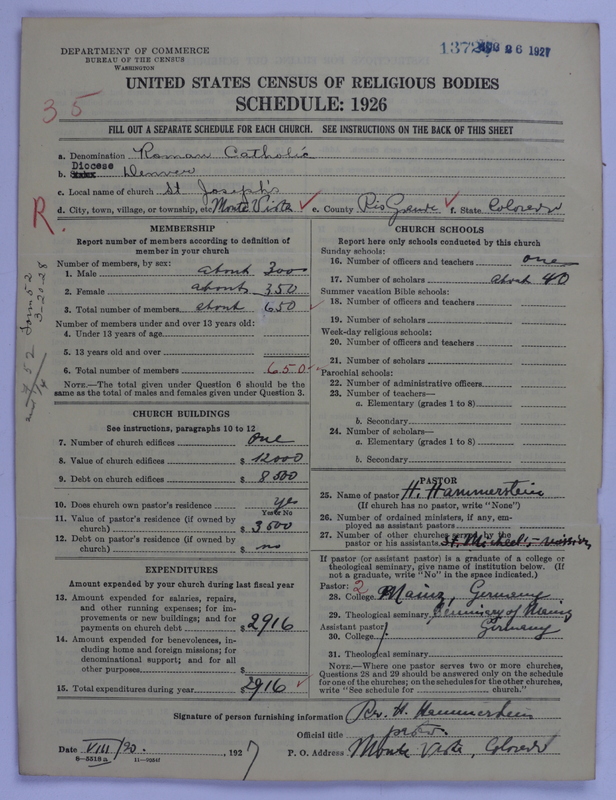 DEPARTMENT OF COMMERCE
BUREAU OF THE CENSUS
WASHINGTON
AUG 26 1927
UNITED STATES CENSUS OF RELIGIOUS BODIES
SCHEDULE: 1926
35
FILL OUT A SEPARATE SCHEDULE FOR EACH CHURCH. SEE INSTRUCTIONS ON THE BACK OF THIS SHEET
a. Denomination Roman Catholic
Diocese
b. State Denver
c. Local name of church St Joseph's
R.
d. City, town, village, or township, etc. Monte Vista e. County Rio Grande f. State Colorado
MEMBERSHIP
Report number of members according to definition of
member in your church
Number of members, by sex:
1. Male about 300
2. Female about 350
3. Total number of members about 650
Number of members under and over 13 years old:
4. Under 13 years of age
5. 13 years old and over
6. Total number of members 650
NOTE.—The total given under Question 6 should be the
same as the total of males and females given under Question 3.
3-2-28
CHURCH BUILDINGS
See instructions, paragraphs 10 to 12
7. Number of church edifices one
8. Value of church edifices $ 12000
9. Debt on church edifices $ 8500
10. Does church own pastor's residence yes
Yes or No
11. Value of pastor's residence (if owned by
church) $ 3500
12. Debt on pastor's residence (if owned by
church) $ no
EXPENDITURES
Amount expended by your church during last fiscal year
13. Amount expended for salaries, repairs,
and other running expenses; for im-
provements or new buildings; and for
payments on church debt $ 2916
14. Amount expended for benevolences, in-
cluding home and foreign missions; for
denominational support; and for all
other purposes $
15. Total expenditures during year $ 2916
CHURCH SCHOOLS
Report here only schools conducted by this church
Sunday schools:
16. Number of officers and teachers one
17. Number of scholars about 40
Summer vacation Bible schools:
18. Number of officers and teachers
19. Number of scholars
Week-day religious schools:
20. Number of officers and teachers
21. Number of scholars
Parochial schools:
22. Number of administrative officers
23. Number of teachers—
a. Elementary (grades 1 to 8)
b. Secondary
24. Number of scholars—
a. Elementary (grades 1 to 8)
b. Secondary
PASTOR
25. Name of pastor H. Hammerstein
(If church has no pastor, write "None")
26. Number of ordained ministers, if any, em-
ployed as assistant pastors
27. Number of other churches served by the
pastor or his assistants St. Michael's, mission
If pastor (or assistant pastor) is a graduate of a college or
theological seminary, give name of institution below. (If
not a graduate, write "No" in the space indicated.)
Pastor: 2
28. College Mainz, Germany
29. Theological seminary Seminary of Mainz
Assistant pastor: Germany
30. College
31. Theological seminary
NOTE.—Where one pastor serves two or more churches,
Questions 28 and 29 should be answered only on the schedule
for one of the churches; on the schedules for the other churches,
write "See schedule for church."
Signature of person furnishing information Rev. H. Hammerstein
Official title pastor
Date VIII/20., 1927
P. O. Address Monte Vista, Colorado
8—5518 a